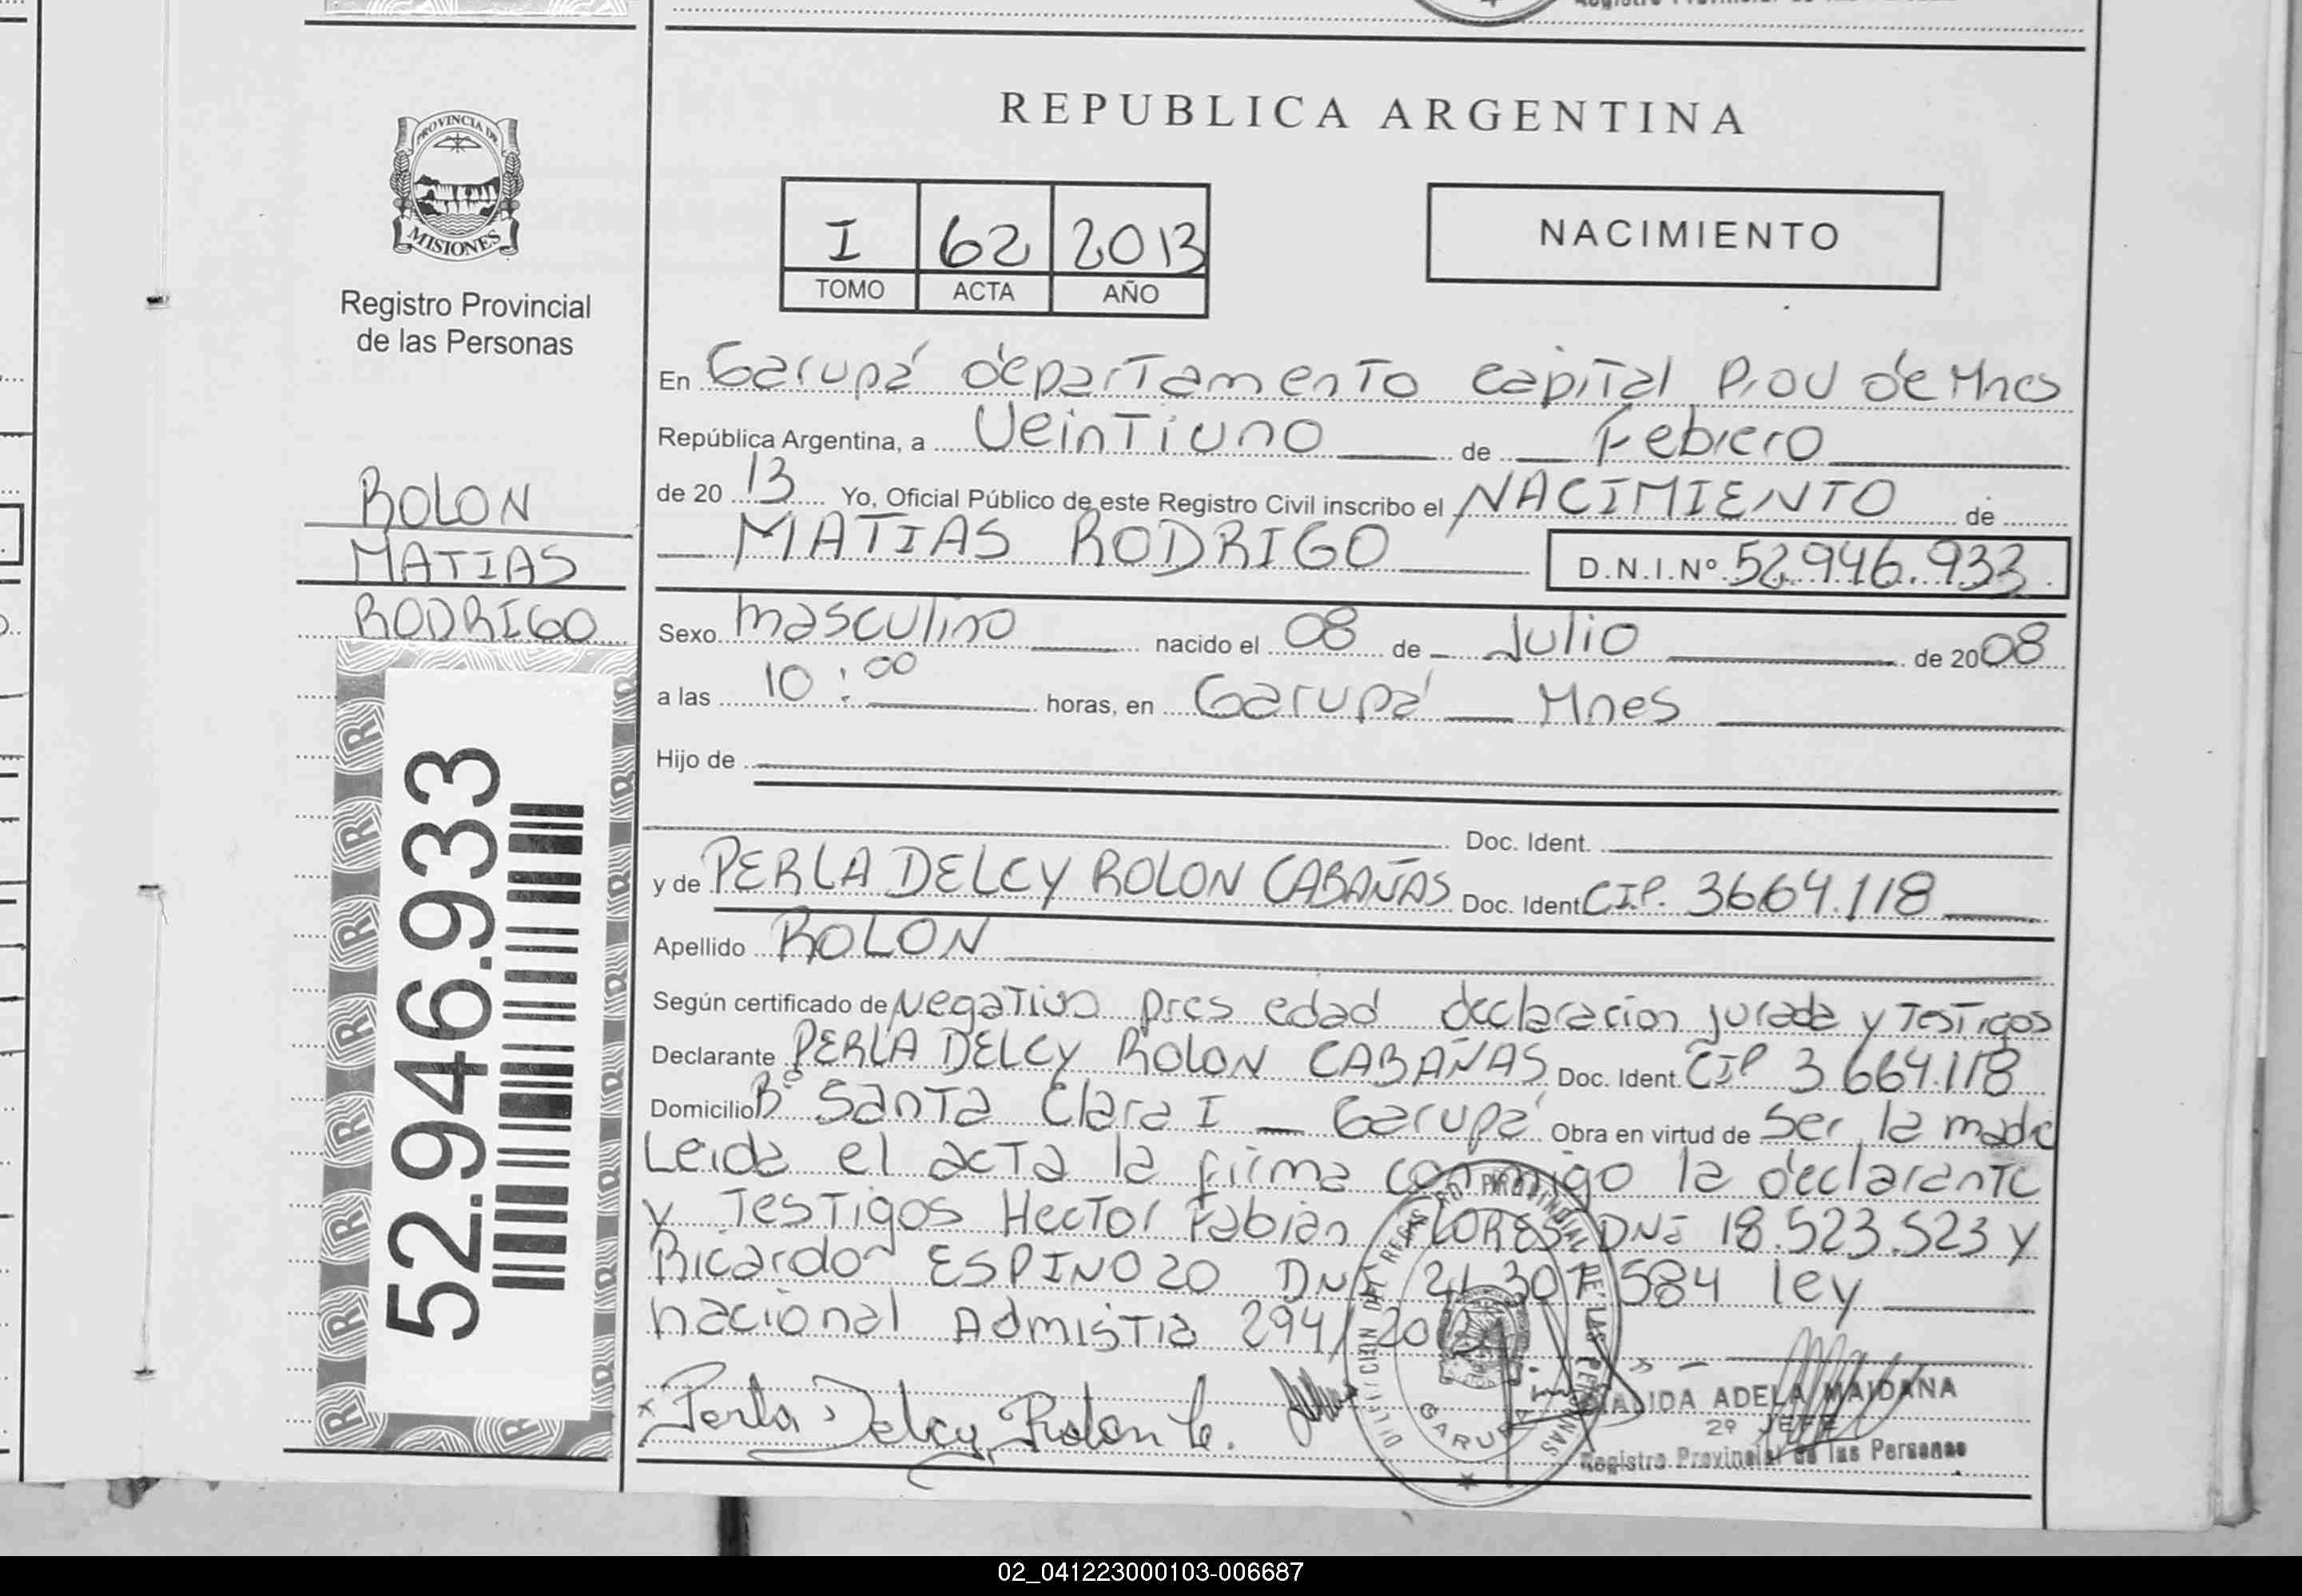 Registro Provincial de las Personas
PROVINCIA DE
MISIONES
Registro Provincial
de las Personas
ROLON
MATIAS
RODRIGO
52.946.933
REPUBLICA ARGENTINA
I 62 2013
TOMO ACTA AÑO
NACIMIENTO
En Garupá departamento capital Prov de Mnes
República Argentina, a Veintiuno de Febrero
de 20 13 Yo, Oficial Público de este Registro Civil inscribo el NACIMIENTO de
MATIAS RODRIGO D.N.I.Nº 52.946.933
Sexo masculino nacido el 08 de Julio de 2008
a las 10:00 horas, en Garupá Mnes
Hijo de
Doc. Ident.
y de PERLA DELCY ROLON CABAÑAS Doc. Ident. CIP. 3664.118
Apellido ROLON
Según certificado de Negativo pres edad declaracion jurada y Testigos
Declarante PERLA DELCY ROLON CABAÑAS Doc. Ident. CIP 3.664.118
Domicilio Bº Santa Clara I - Garupá Obra en virtud de Ser la madre
Leida el acta la firma conmigo la declarante
y Testigos Hector Fabian FLORES DNI 18.523.523 y
Ricardo ESPINOZO DNI 21.307.584 ley
nacional Admistia 294/20
Perla Delcy Rolon C.
DIRECCION DEL REGISTRO PROVINCIAL DE LAS PERSONAS
GARUPA
ADELA MAIDANA
2º JEFE
Registro Provincial de las Personas
02_041223000103-006687